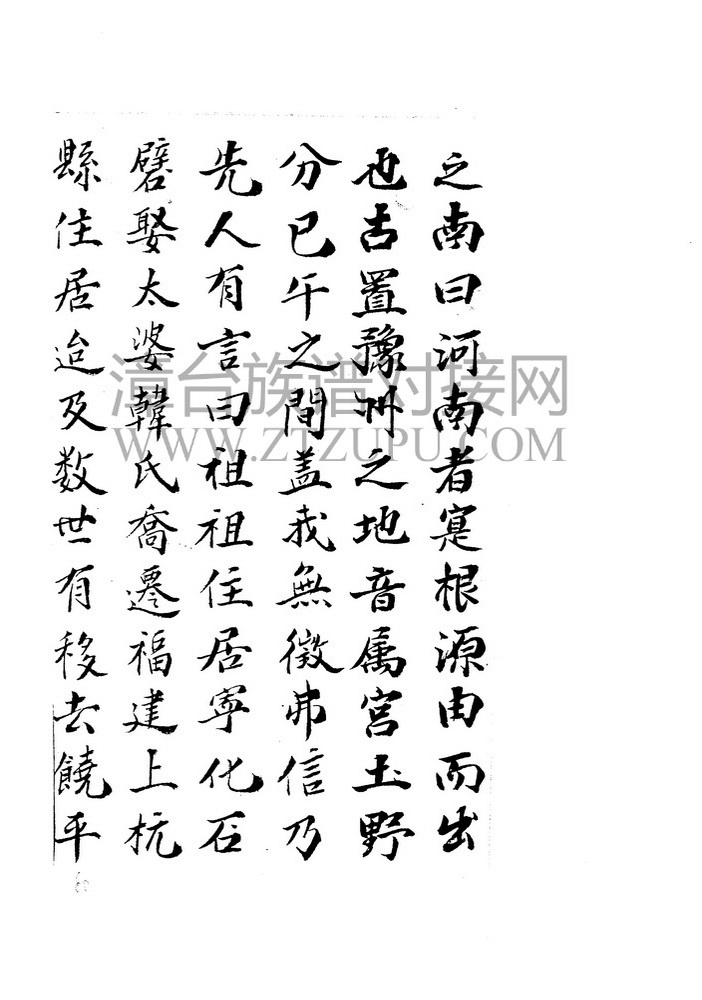 之南曰河南者寔根源由而出
也古置豫州之地音属宮土野
分已午之間盖我無徵弗信乃
先人有言曰祖祖住居寧化石
礕娶太婆韓氏喬遷福建上杭
縣住居迨及数世有移去饒平
漳台族谱对接网
WWW.ZTZUPU.COM
60